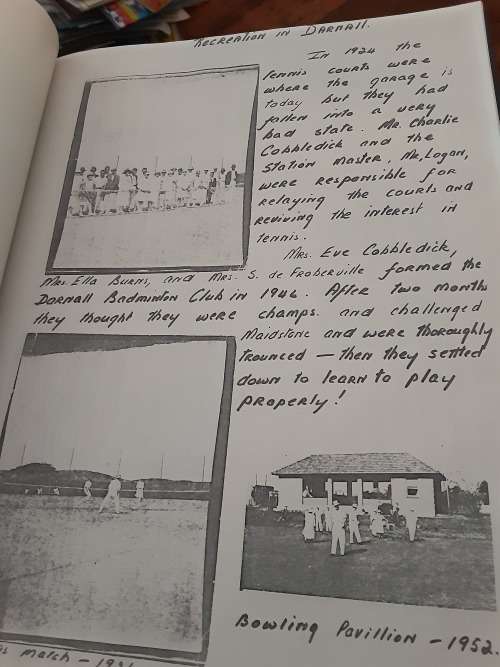 Recreation in Darnall.
In 1924 the
tennis courts were
where the garage is
today but they had
fallen into a very
bad state. Mr. Charlie
Cobbledick and the
Station Master, Mr. Logan,
were responsible for
relaying the courts and
reviving the interest in
tennis.
Mrs. Eve Cobbledick,
Mrs. Ella Burns, and Mrs. S. de Froberville formed the
Darnall Badminton Club in 1946. After two months
they thought they were champs. and challenged
Maidstone and were thoroughly
trounced — then they settled
down to learn to play
properly!
Bowling Pavillion - 1952.
March -